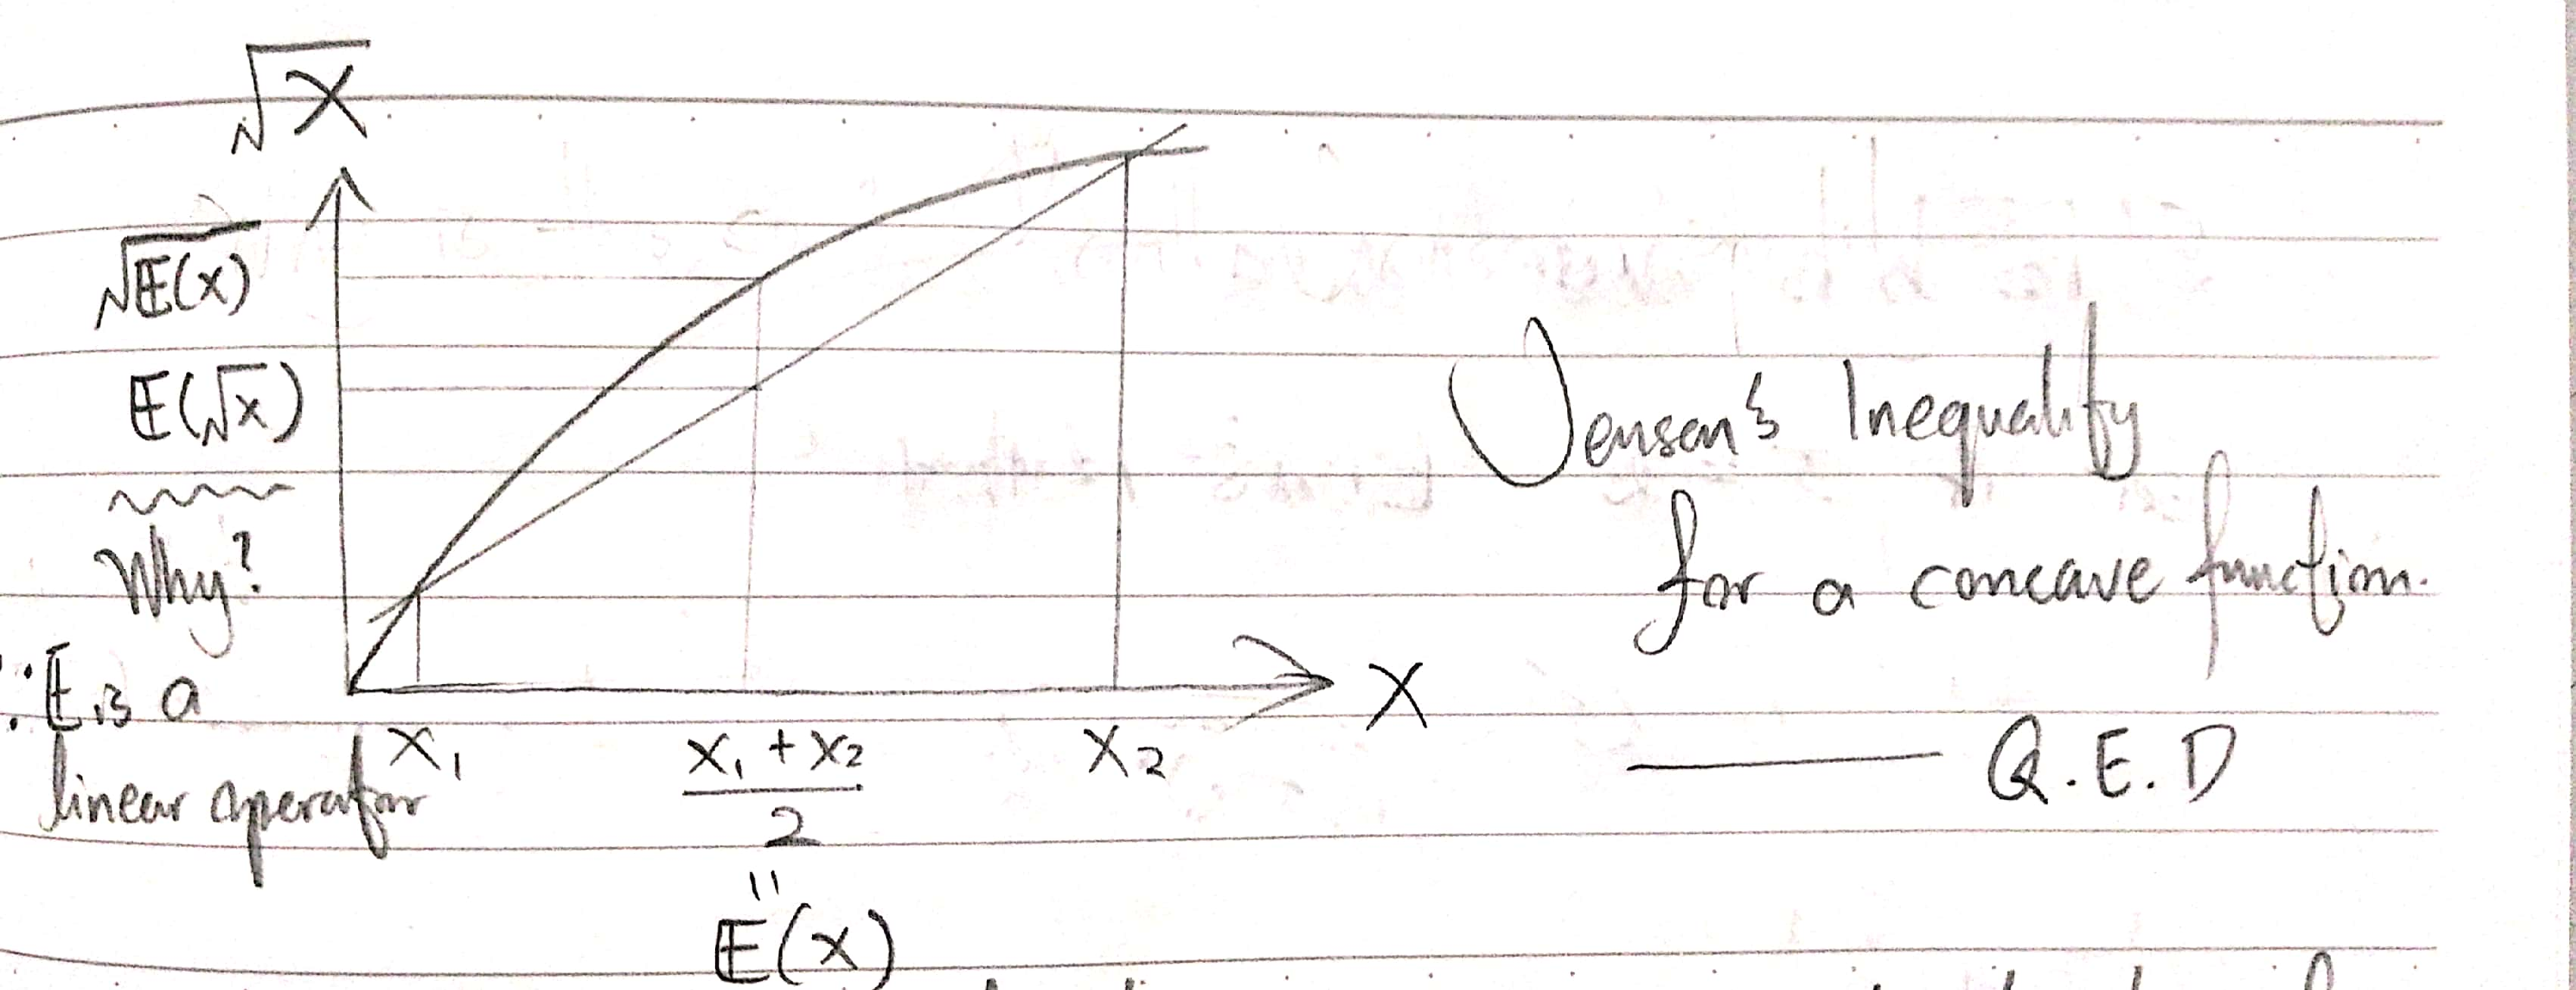 √X
√E(x)
E(√x)
Why?
∵ E is a
linear operator
X₁
X₁ + X₂
2
"
E(x)
X₂
X
Jensen's Inequality
for a concave function.
Q.E.D